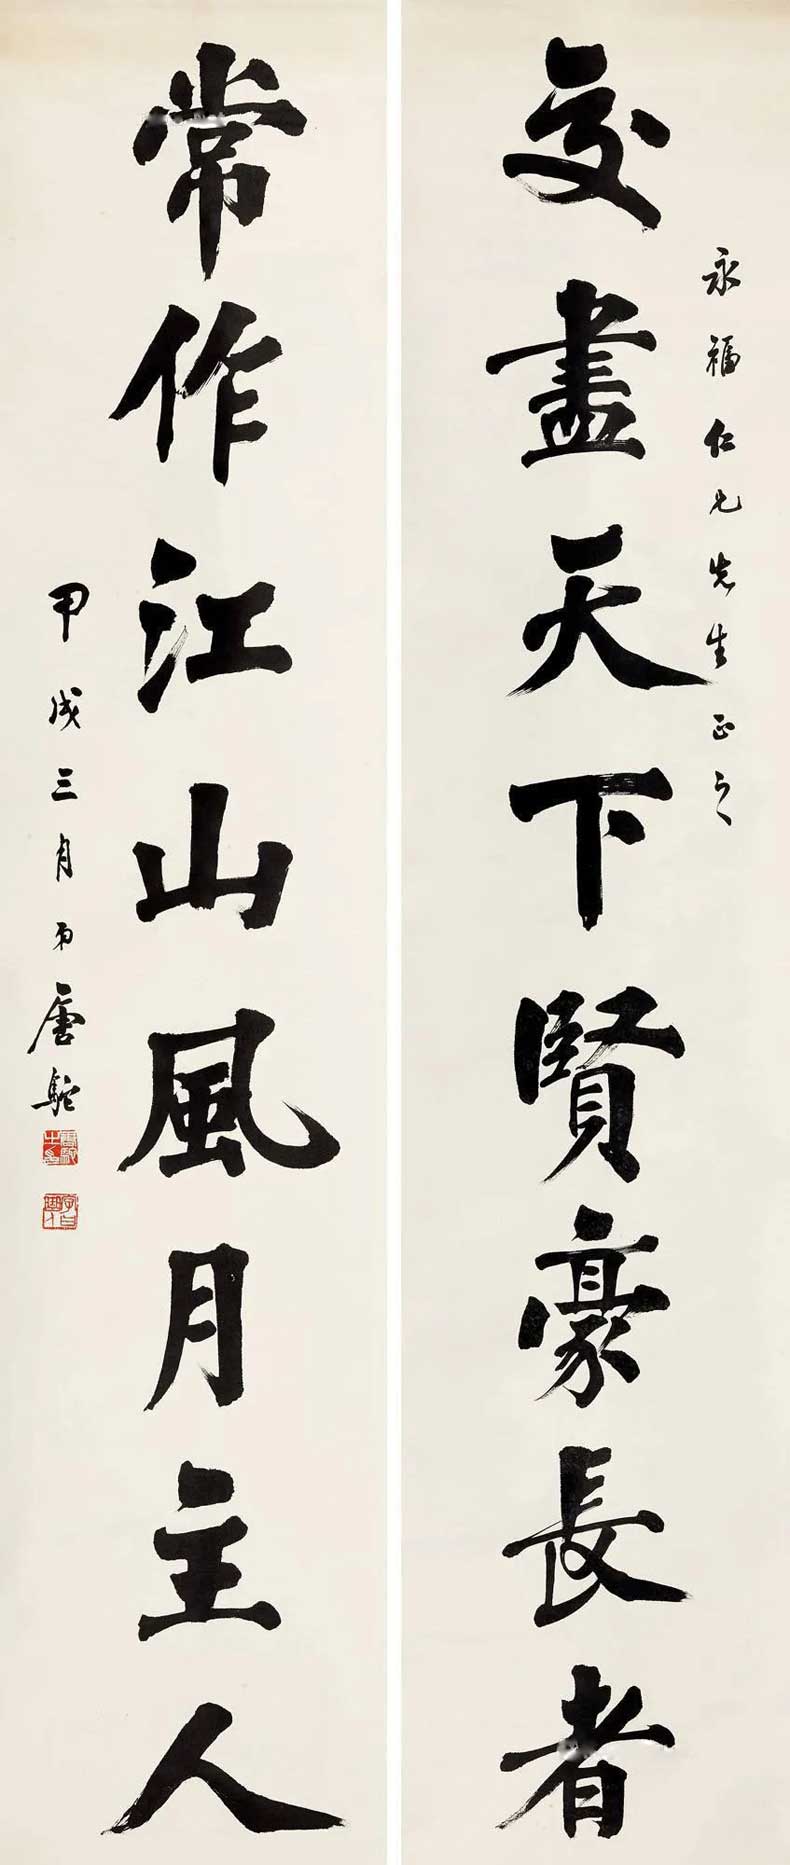 交盡天下賢豪長者
永福仁兄先生正之
常作江山風月主人
甲戌三月弟唐駝